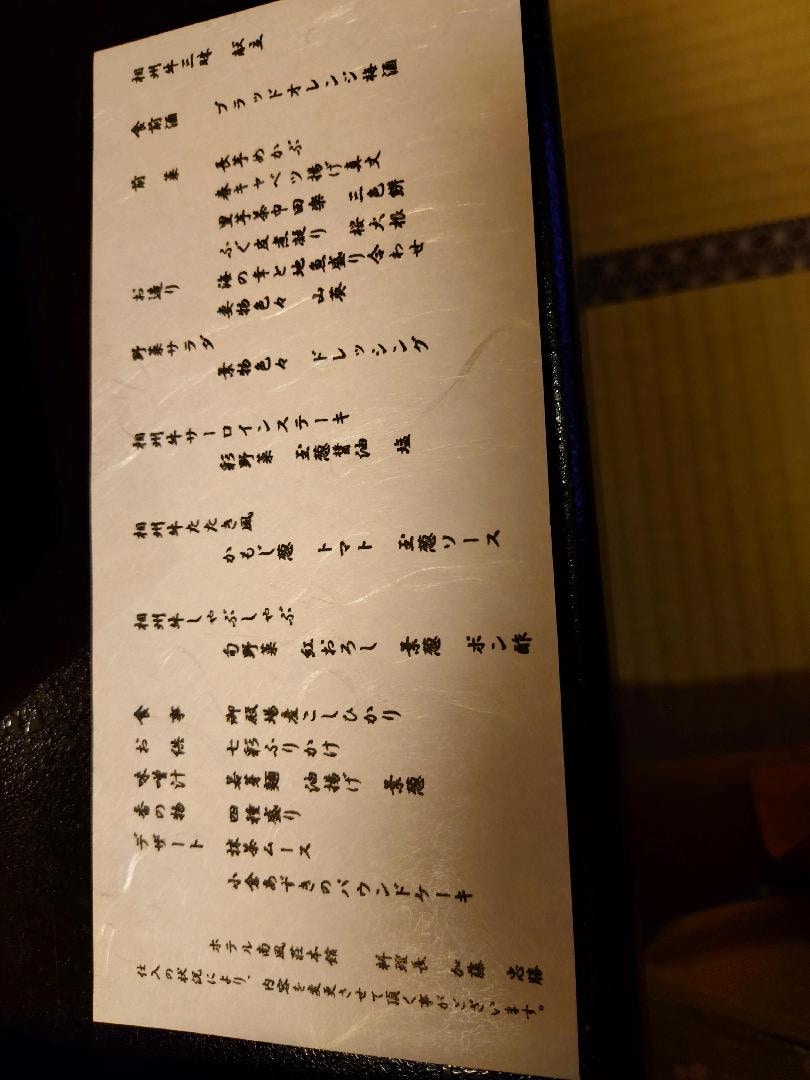 相州牛三昧 献立
食前酒 ブラッドオレンジ梅酒
前菜 長芋めかぶ
春キャベツ揚げ真丈
里芋茶巾田楽 三色餅
ふぐ皮煮凝り 桜大根
お造り 海の幸と地魚盛り合わせ
妻物色々 山葵
野菜サラダ
葉物色々 ドレッシング
相州牛サーロインステーキ
彩野菜 玉葱醤油 塩
相州牛たたき風
かもじ葱 トマト 玉葱ソース
相州牛しゃぶしゃぶ
旬野菜 紅おろし 葉葱 ポン酢
食事 御殿場産こしひかり
お供 七彩ふりかけ
味噌汁 若芽麺 油揚げ 葉葱
香の物 四種盛り
デザート 抹茶ムース
小倉あずきのパウンドケーキ
ホテル南風荘本館 料理長 加藤 忠勝
仕入の状況により、内容を変更させて頂く事がございます。